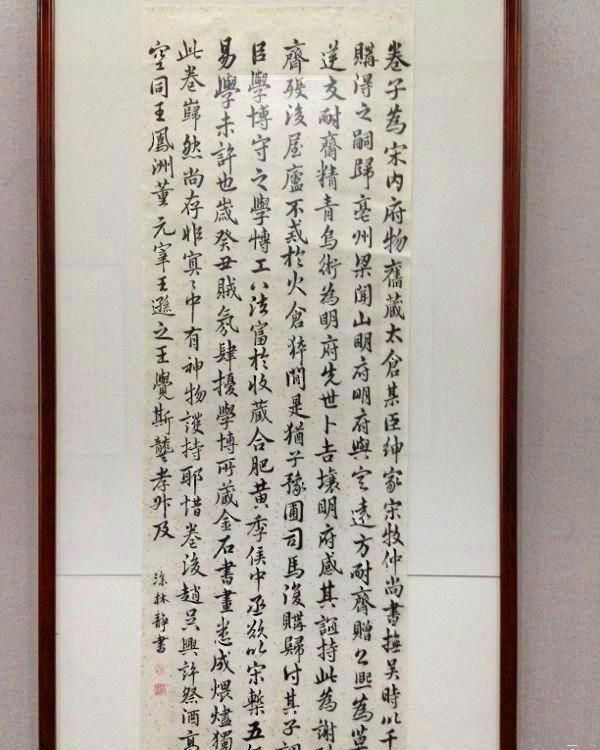 卷子為宋内府物舊藏太倉某臣紳家宋牧仲尚書撫吴時以千
購得之嗣歸亳州梁聞山明府明府與定遠方耐齋贈公熙為莫
逆交耐齋精青烏術為明府先世卜吉壤明府感其誼持此為謝耐
齋歿後屋廬不戒於火倉猝間是猶子豫圃司馬復購歸付其子
臣學博守之學博工八法富於收藏合肥黄季侯中丞欲以宋槧五
易學未許也歲癸丑賊氛肆擾學博所藏金石書畫悉成煨燼獨
此卷巋然尚存非冥冥中有神物護持耶惜卷後趙吴興許祭酒高
空同王鳳洲董元宰王遜之王覺斯龔孝升及
涂林静書